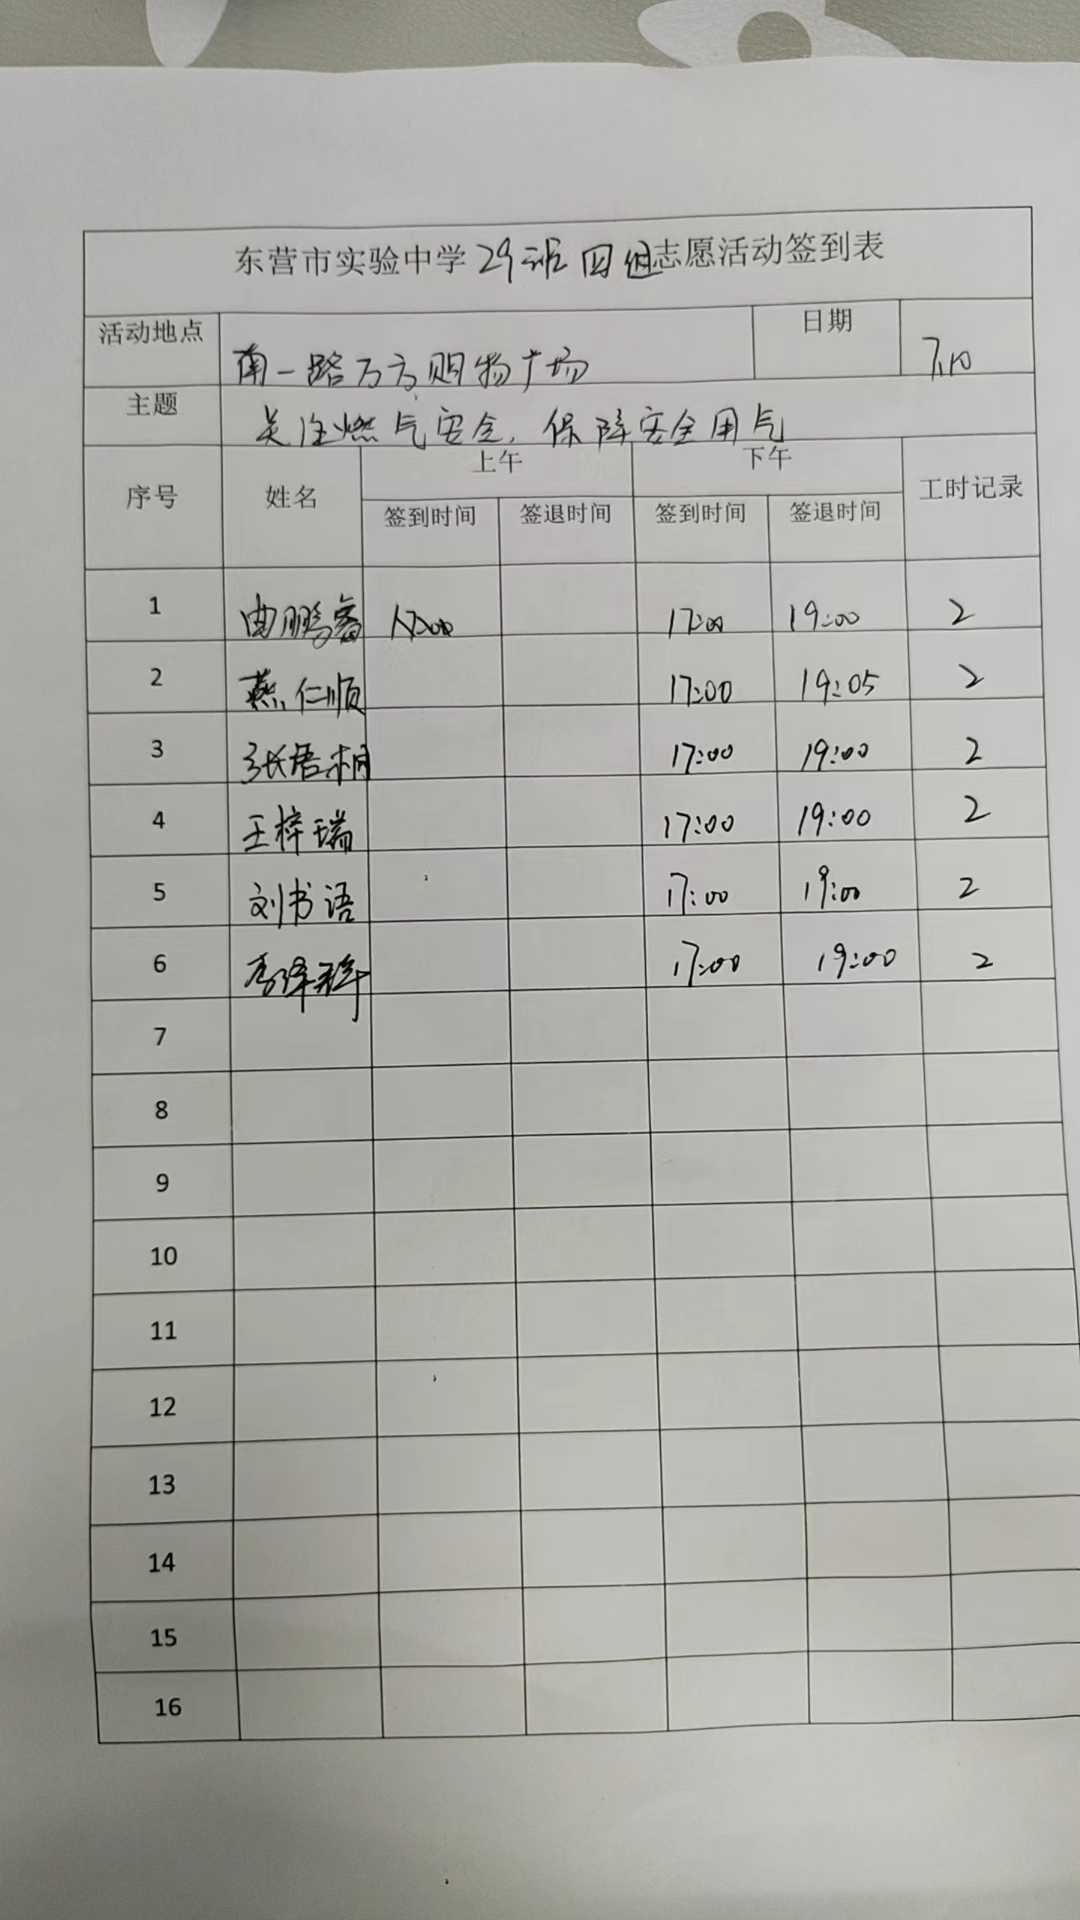 东营市实验中学29班四组志愿活动签到表
活动地点 南一路万方购物广场 日期 7.10
主题 关注燃气安全，保障安全用气
序号 姓名 上午 下午 工时记录
签到时间 签退时间 签到时间 签退时间
1 曲鹏睿 17:00 17:00 19:00 2
2 燕仁顺 17:00 19:05 2
3 张梧桐 17:00 19:00 2
4 王梓瑞 17:00 19:00 2
5 刘书语 17:00 19:00 2
6 李泽 17:00 19:00 2
7
8
9
10
11
12
13
14
15
16